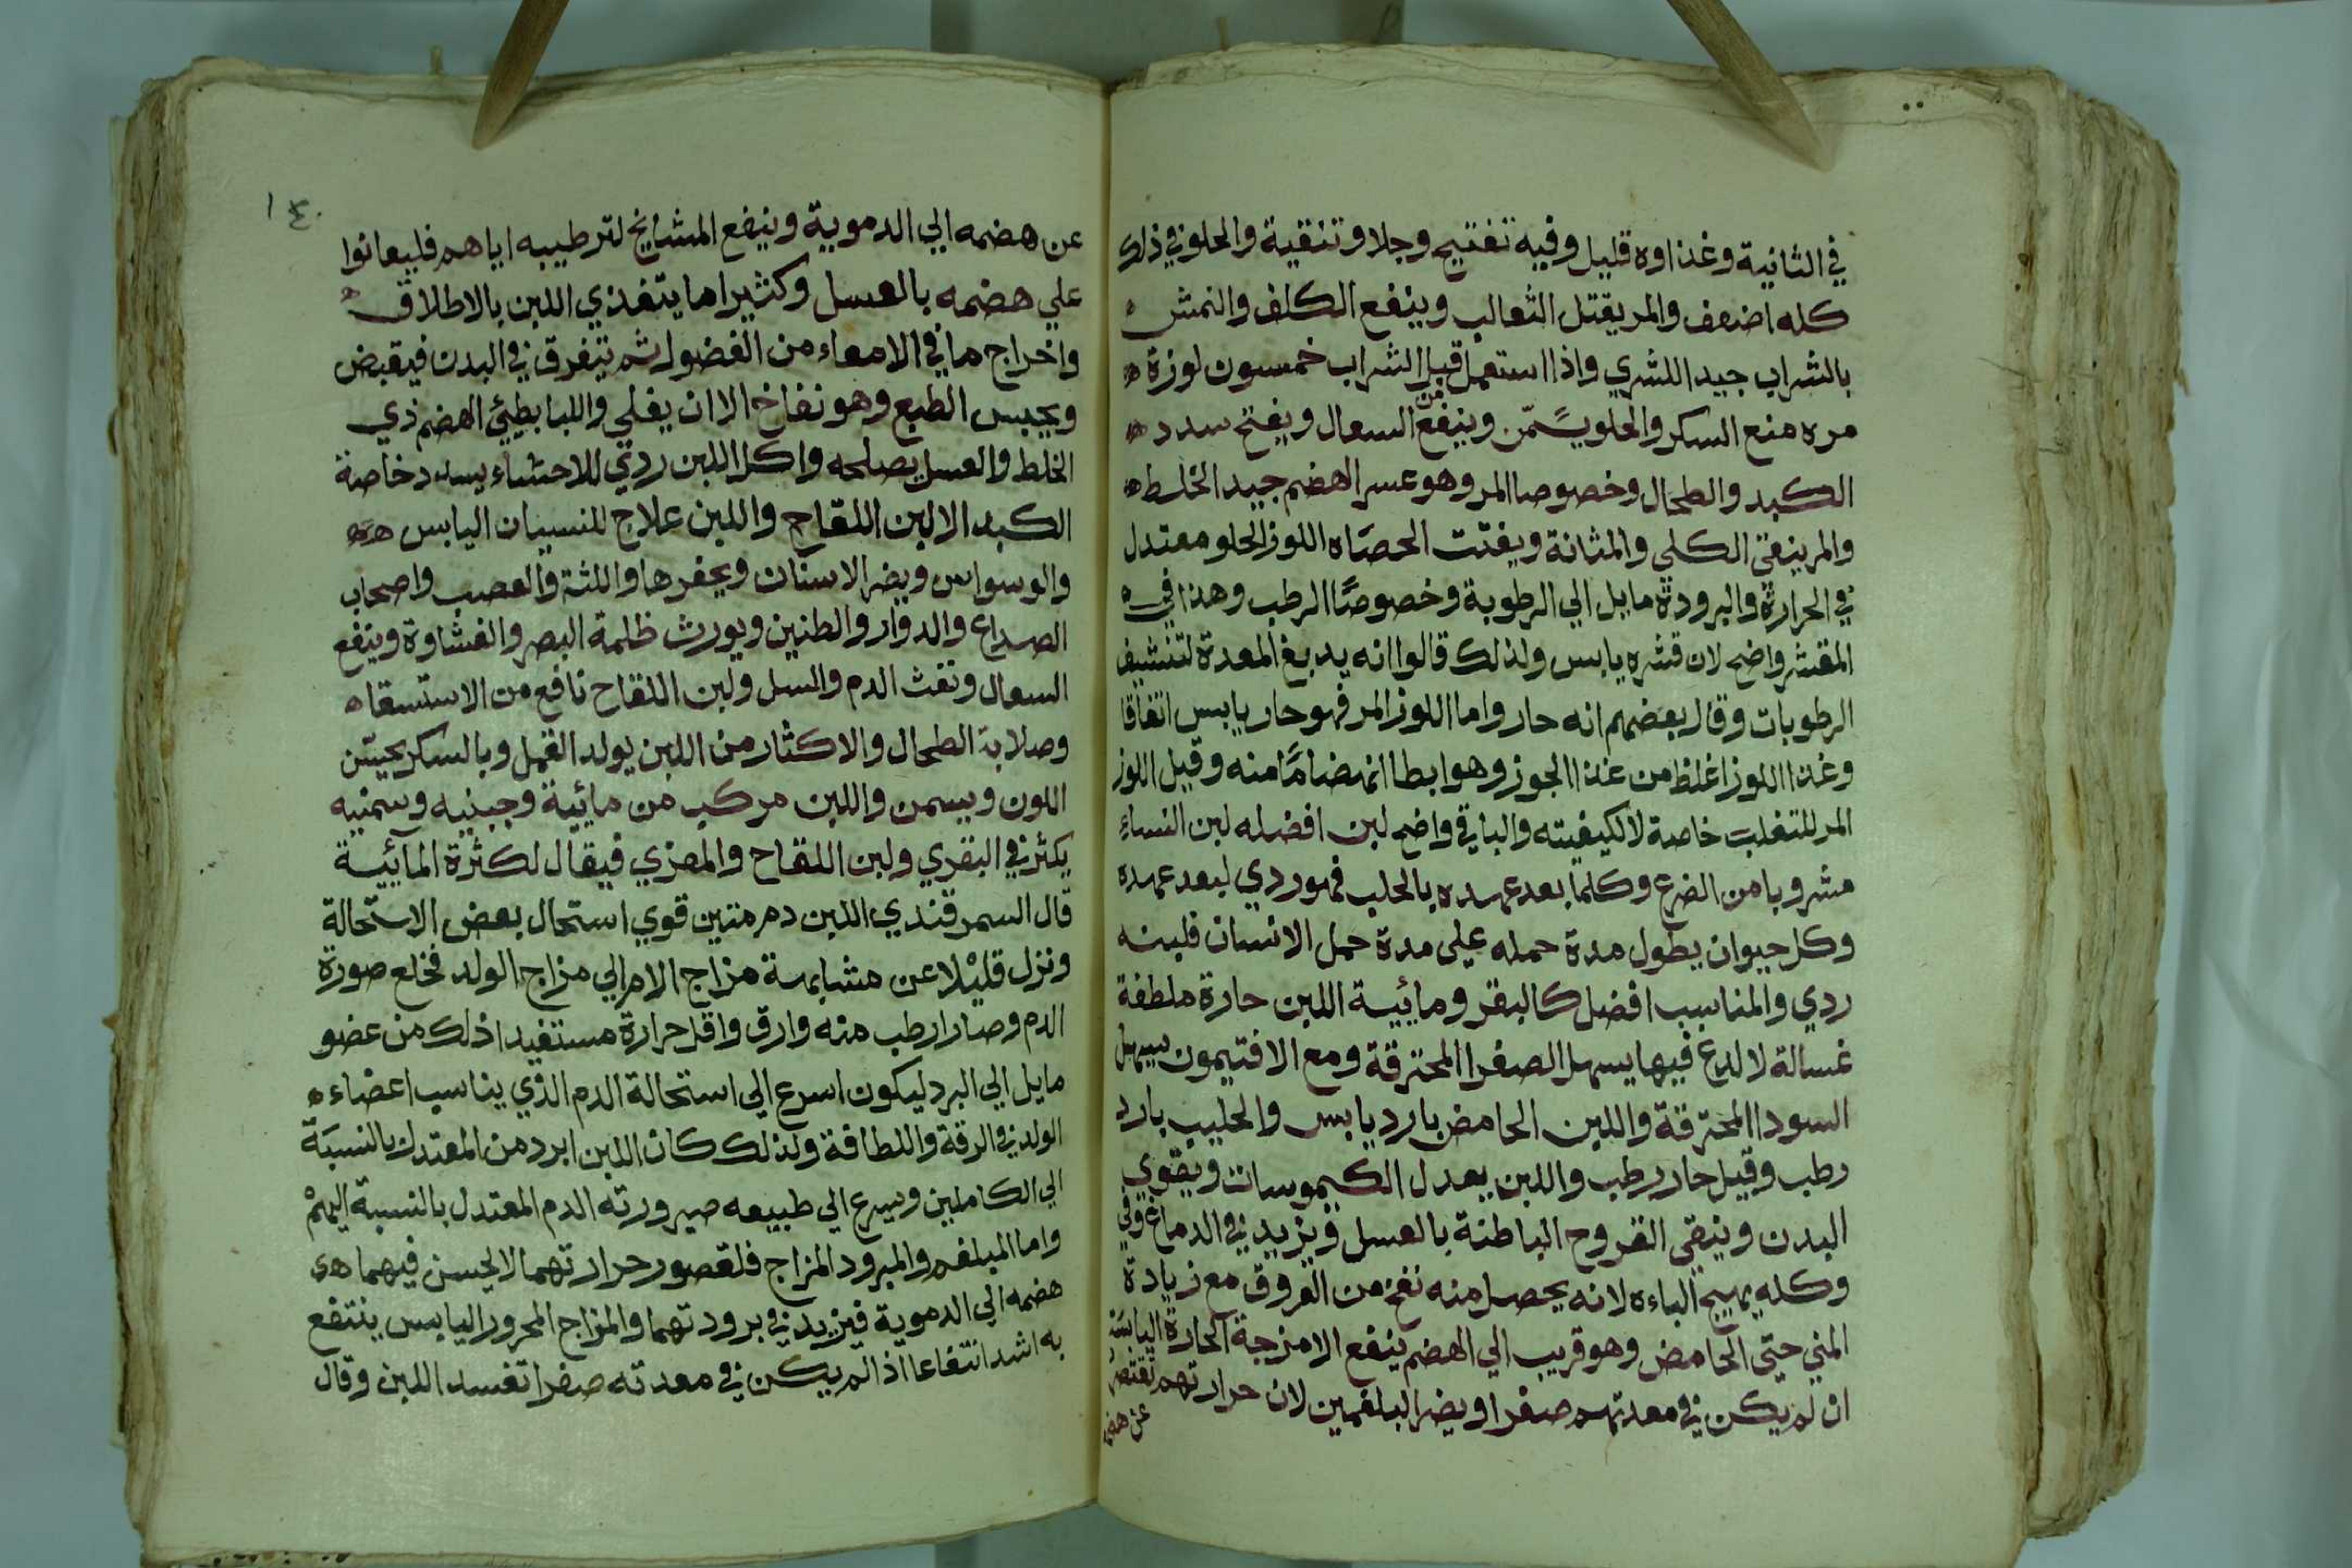 في الثانية وغذاوه قليل وفيه تفتيح وجلا وتنقية والحلو في ذلك
كله اضعف والمر يقتل الثعالب وينفع الكلف والنمش
بالشراب جيد اللشري واذا استعمل قبل الشراب خمسون لوزة
مره منع السكر والحلو يسَمّن وينفع من السعال ويفتح سدد
الكبد والطحال وخصوصا المر وهو عسر الهضم جيد الخلط
والمر ينقي الكلي والمثانة ويفتت الحصَاه اللوز الحلو معتدل
في الحرارة والبرودة مايل الي الرطوبة وخصوصًا الرطب وهذا في
المقشر واضح لان قشره يابس ولذلك قالوا انه يدبغ المعدة لتنشيف
الرطوبات وقال بعضهم انه حار واما اللوز المر فهو حار يابس اتفاقا
وغذا اللوز اغلظ من غذا الجوز وهو ابطا انهضامًا منه وقيل اللوز
المر للثعلب خاصة لا لكيفيته والباقي واضح لبن افضله لبن النساء
مشروبا من الضرع وكلما بعد عهده بالحلب فهو ردي لبعد عهده
وكل حيوان يطول مدة حمله علي مدة حمل الانسان فلبنه
ردي والمناسب افضل كالبقر ومائية اللبن حارة ملطفة
غسالة لا لدع فيها يسهل الصفرا المحترقة ومع الافتيمون يسهل
السودا المحترقة واللبن الحامض بارد يابس والحليب بارد
رطب وقيل حار رطب واللبن يعدل الكيموسات ويقوي
البدن وينقي القروح الباطنة بالعسل ويزيد في الدماغ وفي
وكله يهيج الباءه لانه يحصل منه نفخ من العروق مع زيادة
المني حتى الحامض وهو قريب الي الهضم ينفع الامزجة الحارة اليابسَة
ان لم يكن في معدتهم صفرا ويضر البلغمين لان حرارتهم تقتصر
عن هضمه
١٤٠
عن هضمه الي الدموية وينفع المشايخ لترطيبه اياهم فليعانوا
علي هضمه بالعسل وكثيرا ما يتغذي اللبن بالاطلاق
واخراج ما في الامعاء من الفضول ثم يتفرق في البدن فيقبض
ويحبس الطبع وهو نفاخ الا ان يغلي واللبا بطيئ الهضم ذي
الخلط والعسل يصلحه واكل اللبن ردي للاحشاء يسدد خاصة
الكبد الا لبن اللقاح واللبن علاج للنسيان اليابس
والوسواس ويضر الاسنان ويحفرها واللثة والعصب واصحاب
الصداع والدوار والطنين ويورث ظلمة البصر والغشاوة وينفع
السعال ونفث الدم والسل ولبن اللقاح نافع من الاستسقا
وصلابة الطحال والاكثار من اللبن يولد القمل وبالسكر يحسّن
اللون ويسمن واللبن مركب من مائية وجبنيه وسمنيه
يكثر في البقري ولبن اللقاح والمعزي فيقال لكثرة المائية
قال السمرقندي اللبن دم متين قوي استحال بعض الاستحالة
ونزل قليلا عن مشابهة مزاج الام الي مزاج الولد فخلع صورة
الدم وصار ارطب منه وارق واقل حرارة مستفيدا ذلك من عضو
مايل الي البرد ليكون اسرع الي استحالة الدم الذي يناسب اعضاء
الولد في الرقة واللطافة ولذلك كان اللبن ابرد من المعتدل بالنسبَة
الي الكاملين وسرع الي طبيعه صيرورته الدم المعتدل بالنسبة اليهم
واما المبلغم والمبرود المزاج فلقصور حرارتهما لا يحسن فيهما
هضمه الي الدموية فيزيد في برودتهما والمزاج المحرور اليابس ينتفع
به اشد انتفاعا اذا لم يكن في معدته صفرا تفسد اللبن وقال